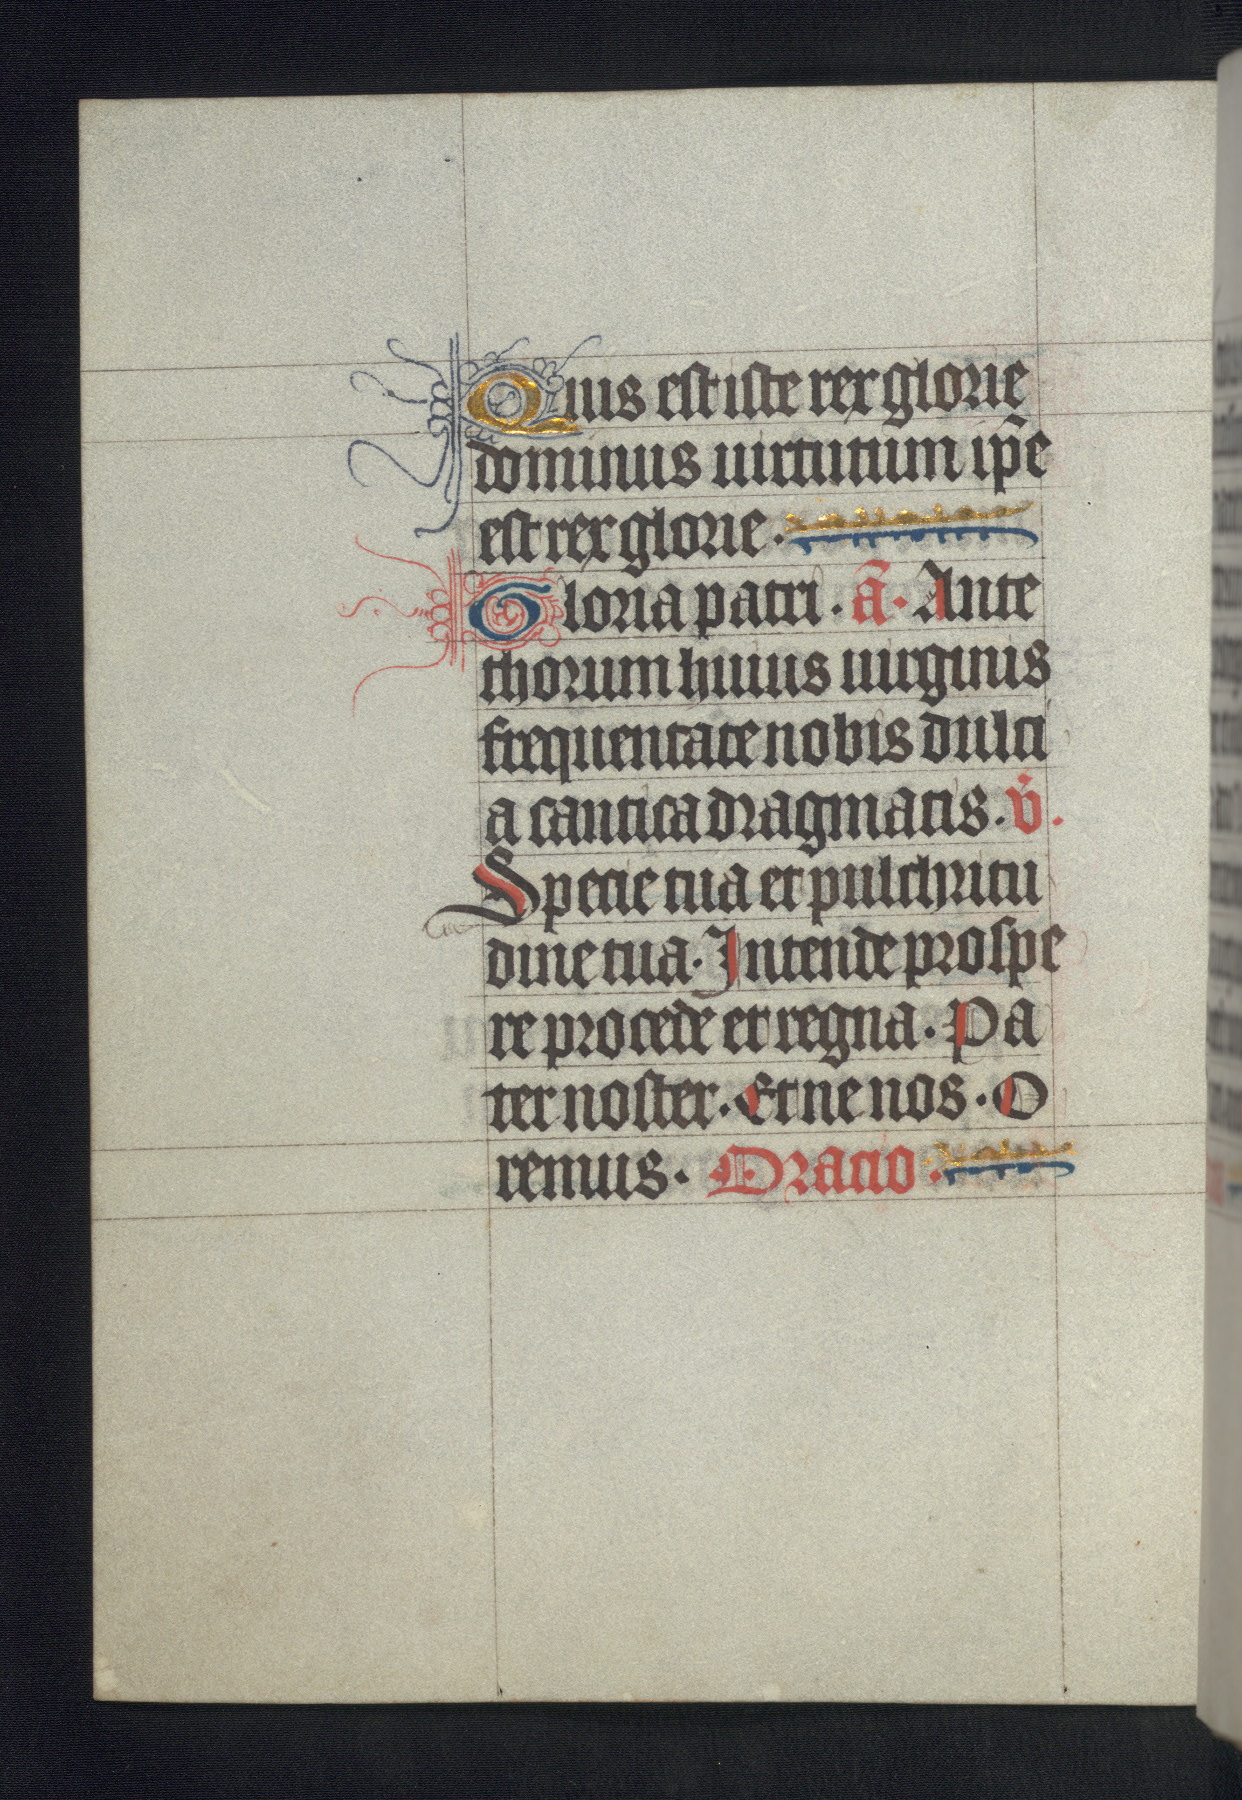 Quis est iste rex glorie
dominus uirtutum ip̅e
est rex glorie.
Gloria patri. a̅. Ante
thorum huius uirginis
frequentate nobis dulci
a cantica dragmatis. v̇.
Specie tua et pulchritu
dine tua. Intende prospe
re procede et regna. Pa
ter noster. Et ne nos. O
remus. Oracio.